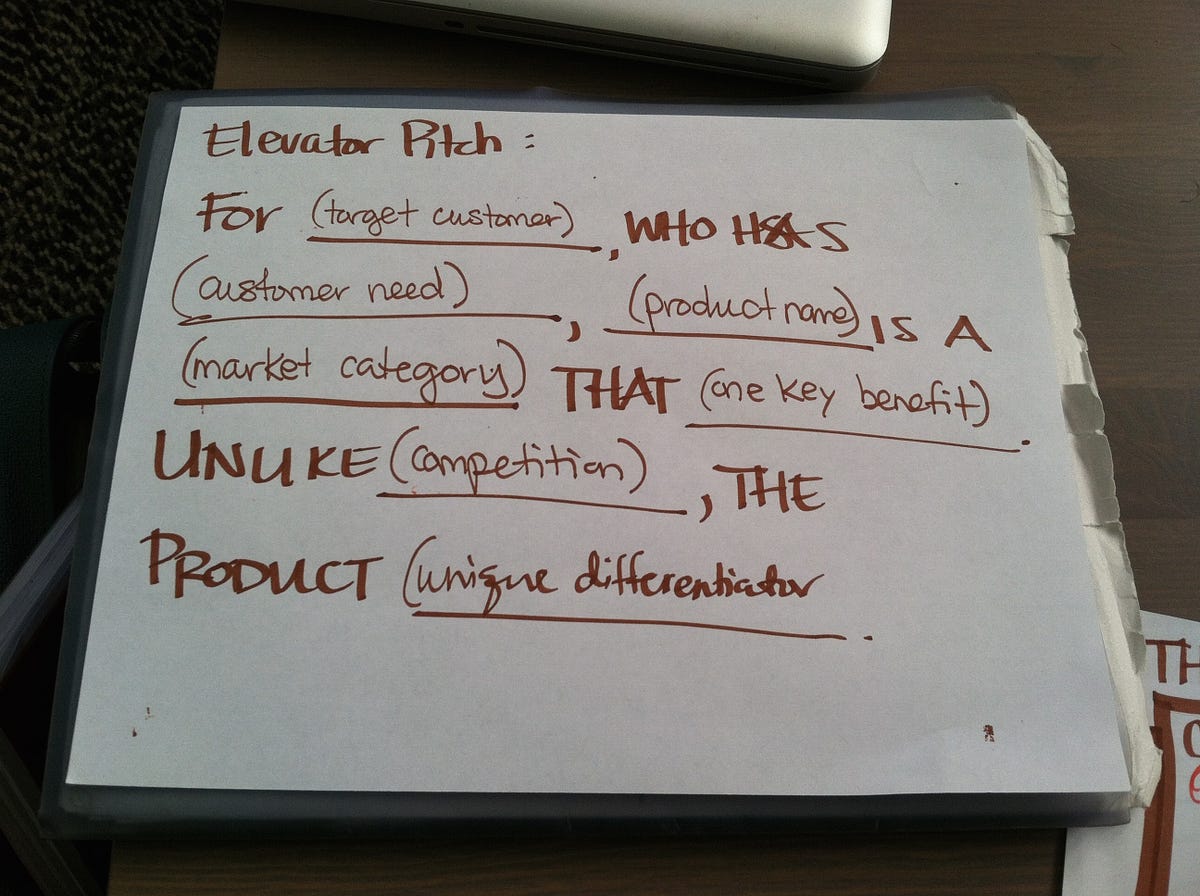 Elevator Pitch :
FOR (target customer), WHO HAS
(customer need), (product name) IS A
(market category) THAT (one key benefit).
UNLIKE (competition), THE
PRODUCT (unique differentiator.
TH